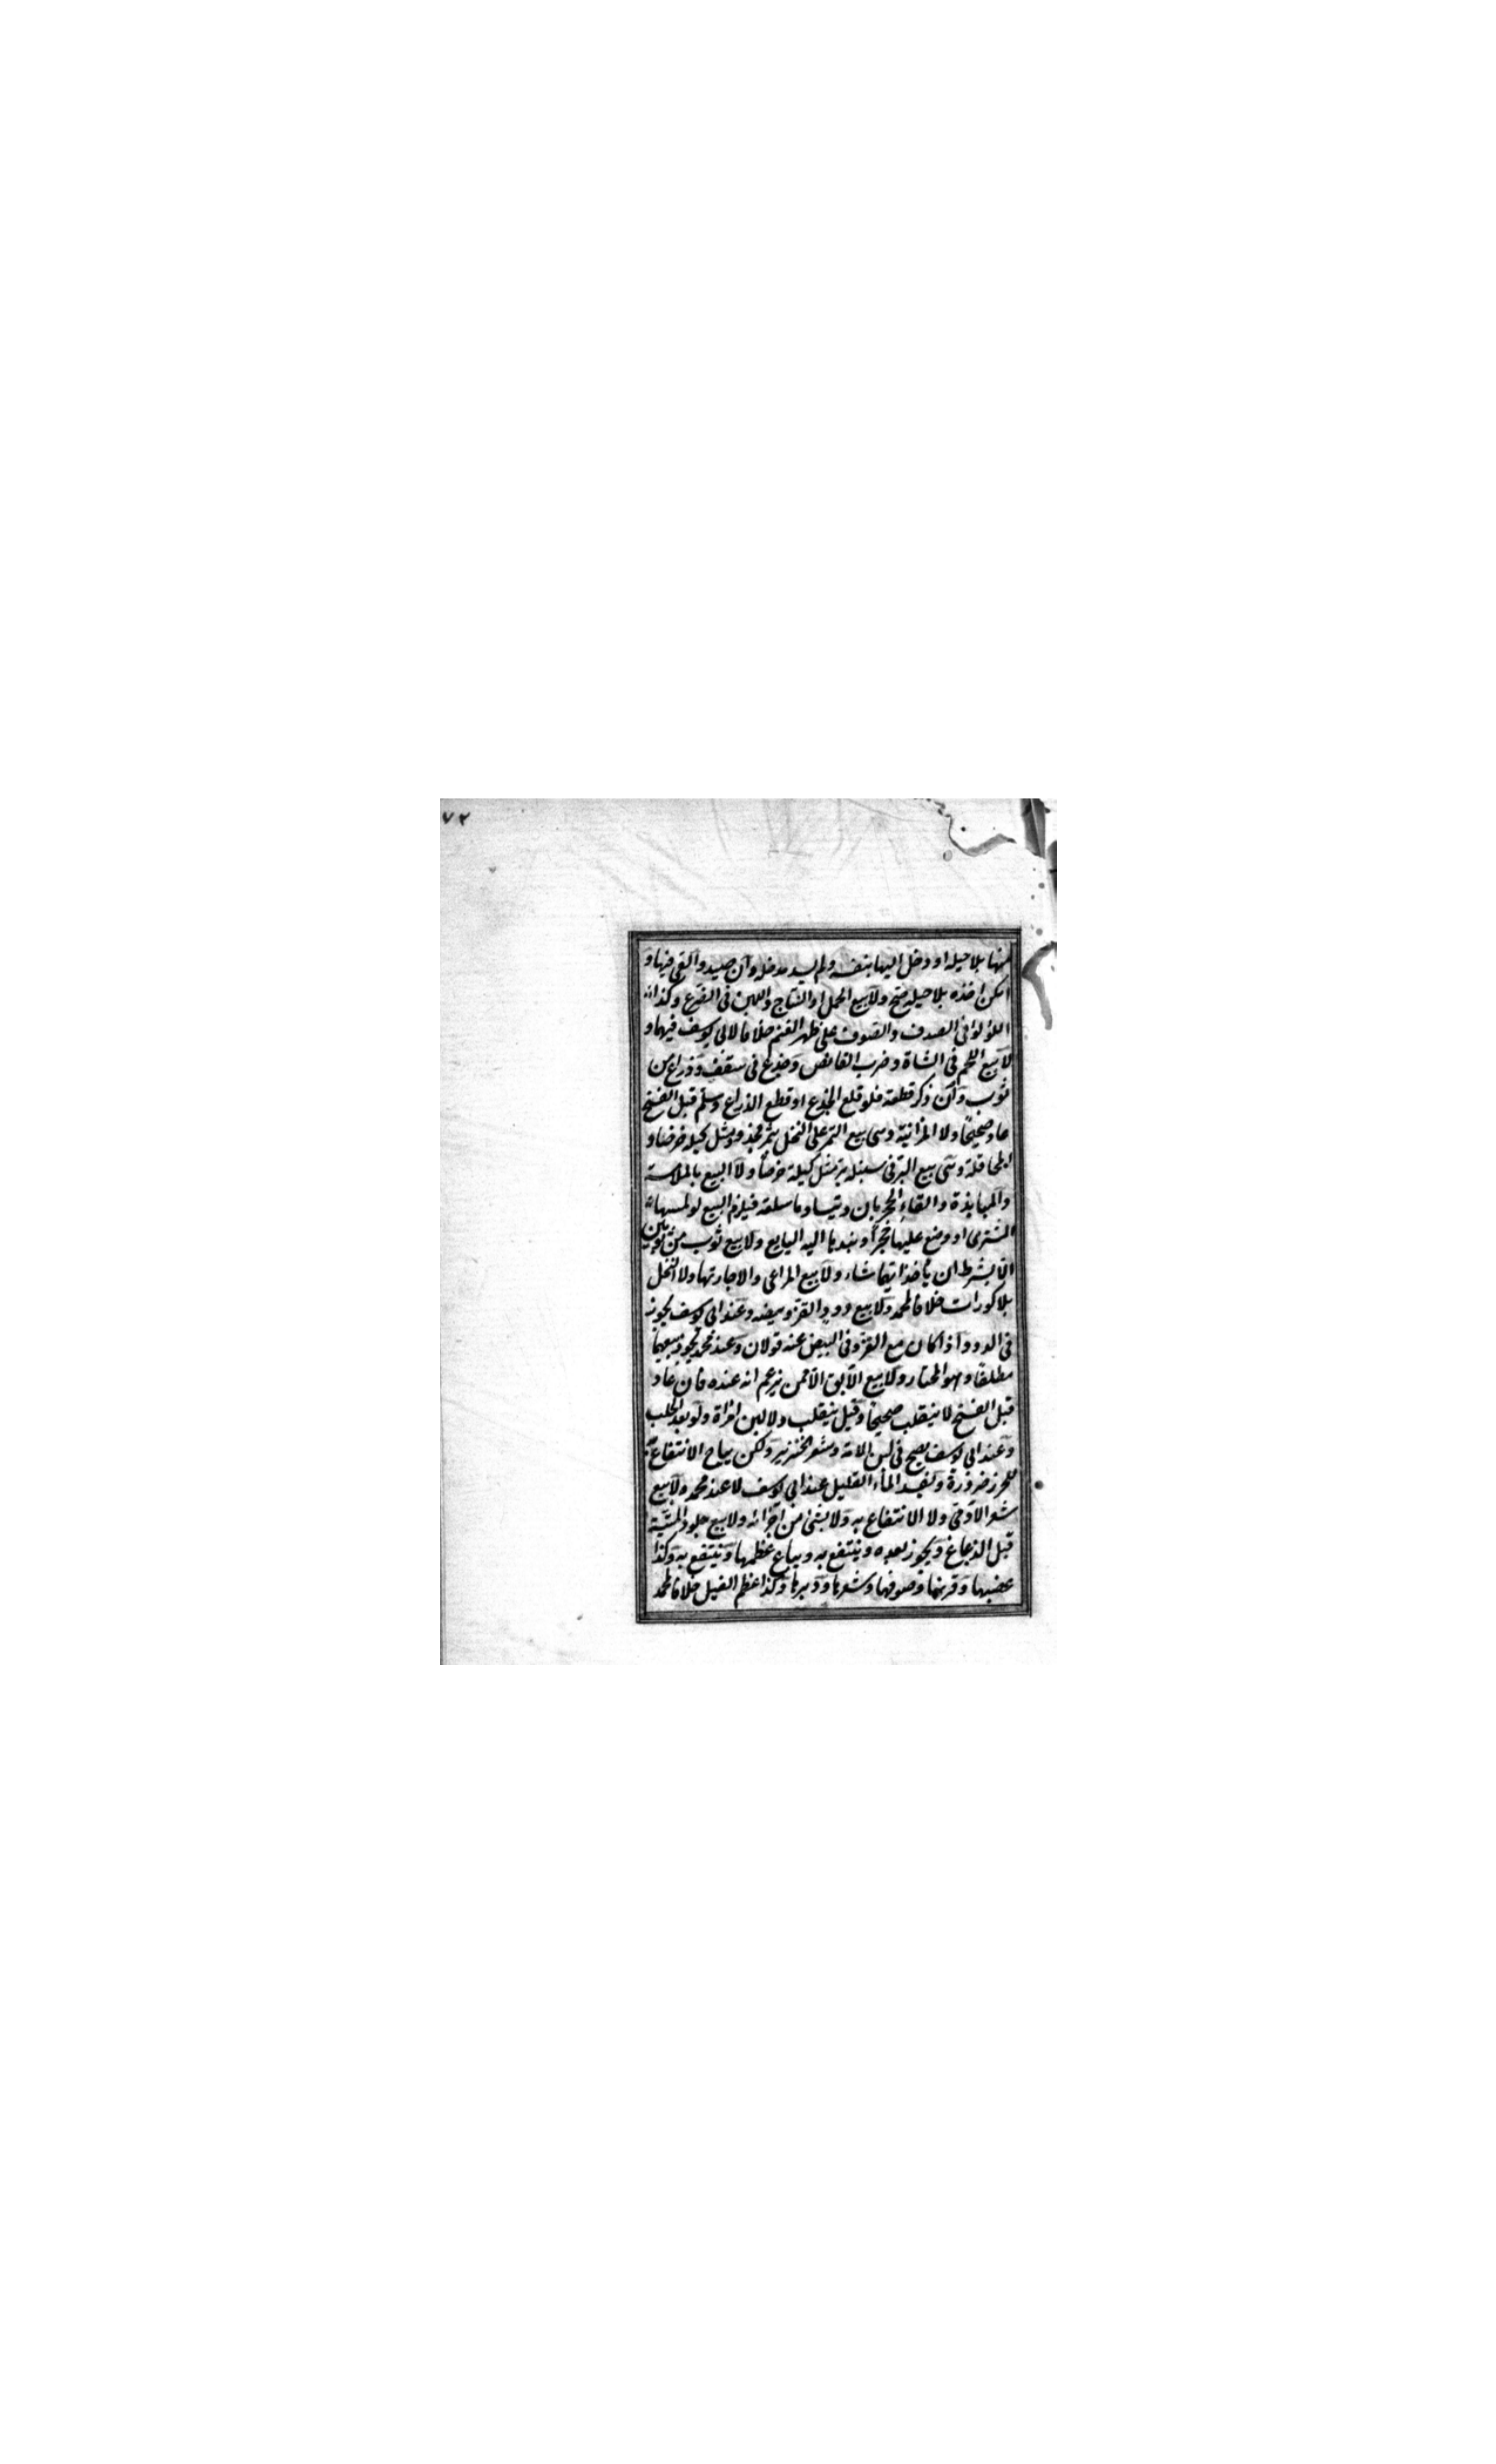 ٧٢
منها بلا حيلة او دخل اليها بنفسه ولم يسد مدخله وان صيد والقى فيها و
امكن اخذه بلا حيلة صح ولا بيع الحمل او النتاج واللبن فى الضرع وكذا
اللؤلؤ فى الصدف والصوف على ظهر الغنم خلافا لابى يوسف فيهما و
لا بيع اللحم فى الشاة وضربة القانص وجذع فى سقف وذراع من
ثوب وان ذكر قطعه فلو قلع الجذع او قطع الذراع وسلم قبل الفسخ
عاد صحيحا ولا المزابنة وهى بيع التمر على النخل بتمر مجذوذ مثل كيله خرصا و
المحاقلة وهى بيع البر فى سنبله ببر مثل كيله خرصا ولا البيع بالملامسة
والمنابذة والقاء الحجر بان يتساوما سلعة فيلزم البيع لو لمسها
المشترى او وضع عليها حجرا او نبذها اليه البايع ولا بيع ثوب من ثوبين
الا بشرط ان ياخذ ايهما شاء ولا بيع المراعى ولا اجارتها ولا النحل
بلا كورات خلافا لمحمد ولا بيع دود القز وبيضه وعند ابى يوسف يجوز
فى الدود اذا كان مع القز وفى البيض عنه قولان وعند محمد يجوز بيعهما
مطلقا وهو المختار ولا بيع الآبق الا ممن يزعم انه عنده فان عاد
قبل الفسخ لا ينقلب صحيحا وقيل ينقلب ولا لبن امراة ولو بعد الحلب
وعند ابى يوسف يصح فى لبن الامة وشعر الخنزير ولكن يباح الانتفاع به
للخرز ضرورة ويفسد الماء القليل عند ابى يوسف لا عند محمد ولا بيع
شعر الآدمى ولا الانتفاع به ولا بشئ من اجزائه ولا بيع جلود الميتة
قبل الدباغ ويجوز بعده وينتفع به ويباع عظمها وينتفع به وكذا
عصبها وقرنها وصوفها وشعرها ووبرها وكذا عظم الفيل خلافا لمحمد